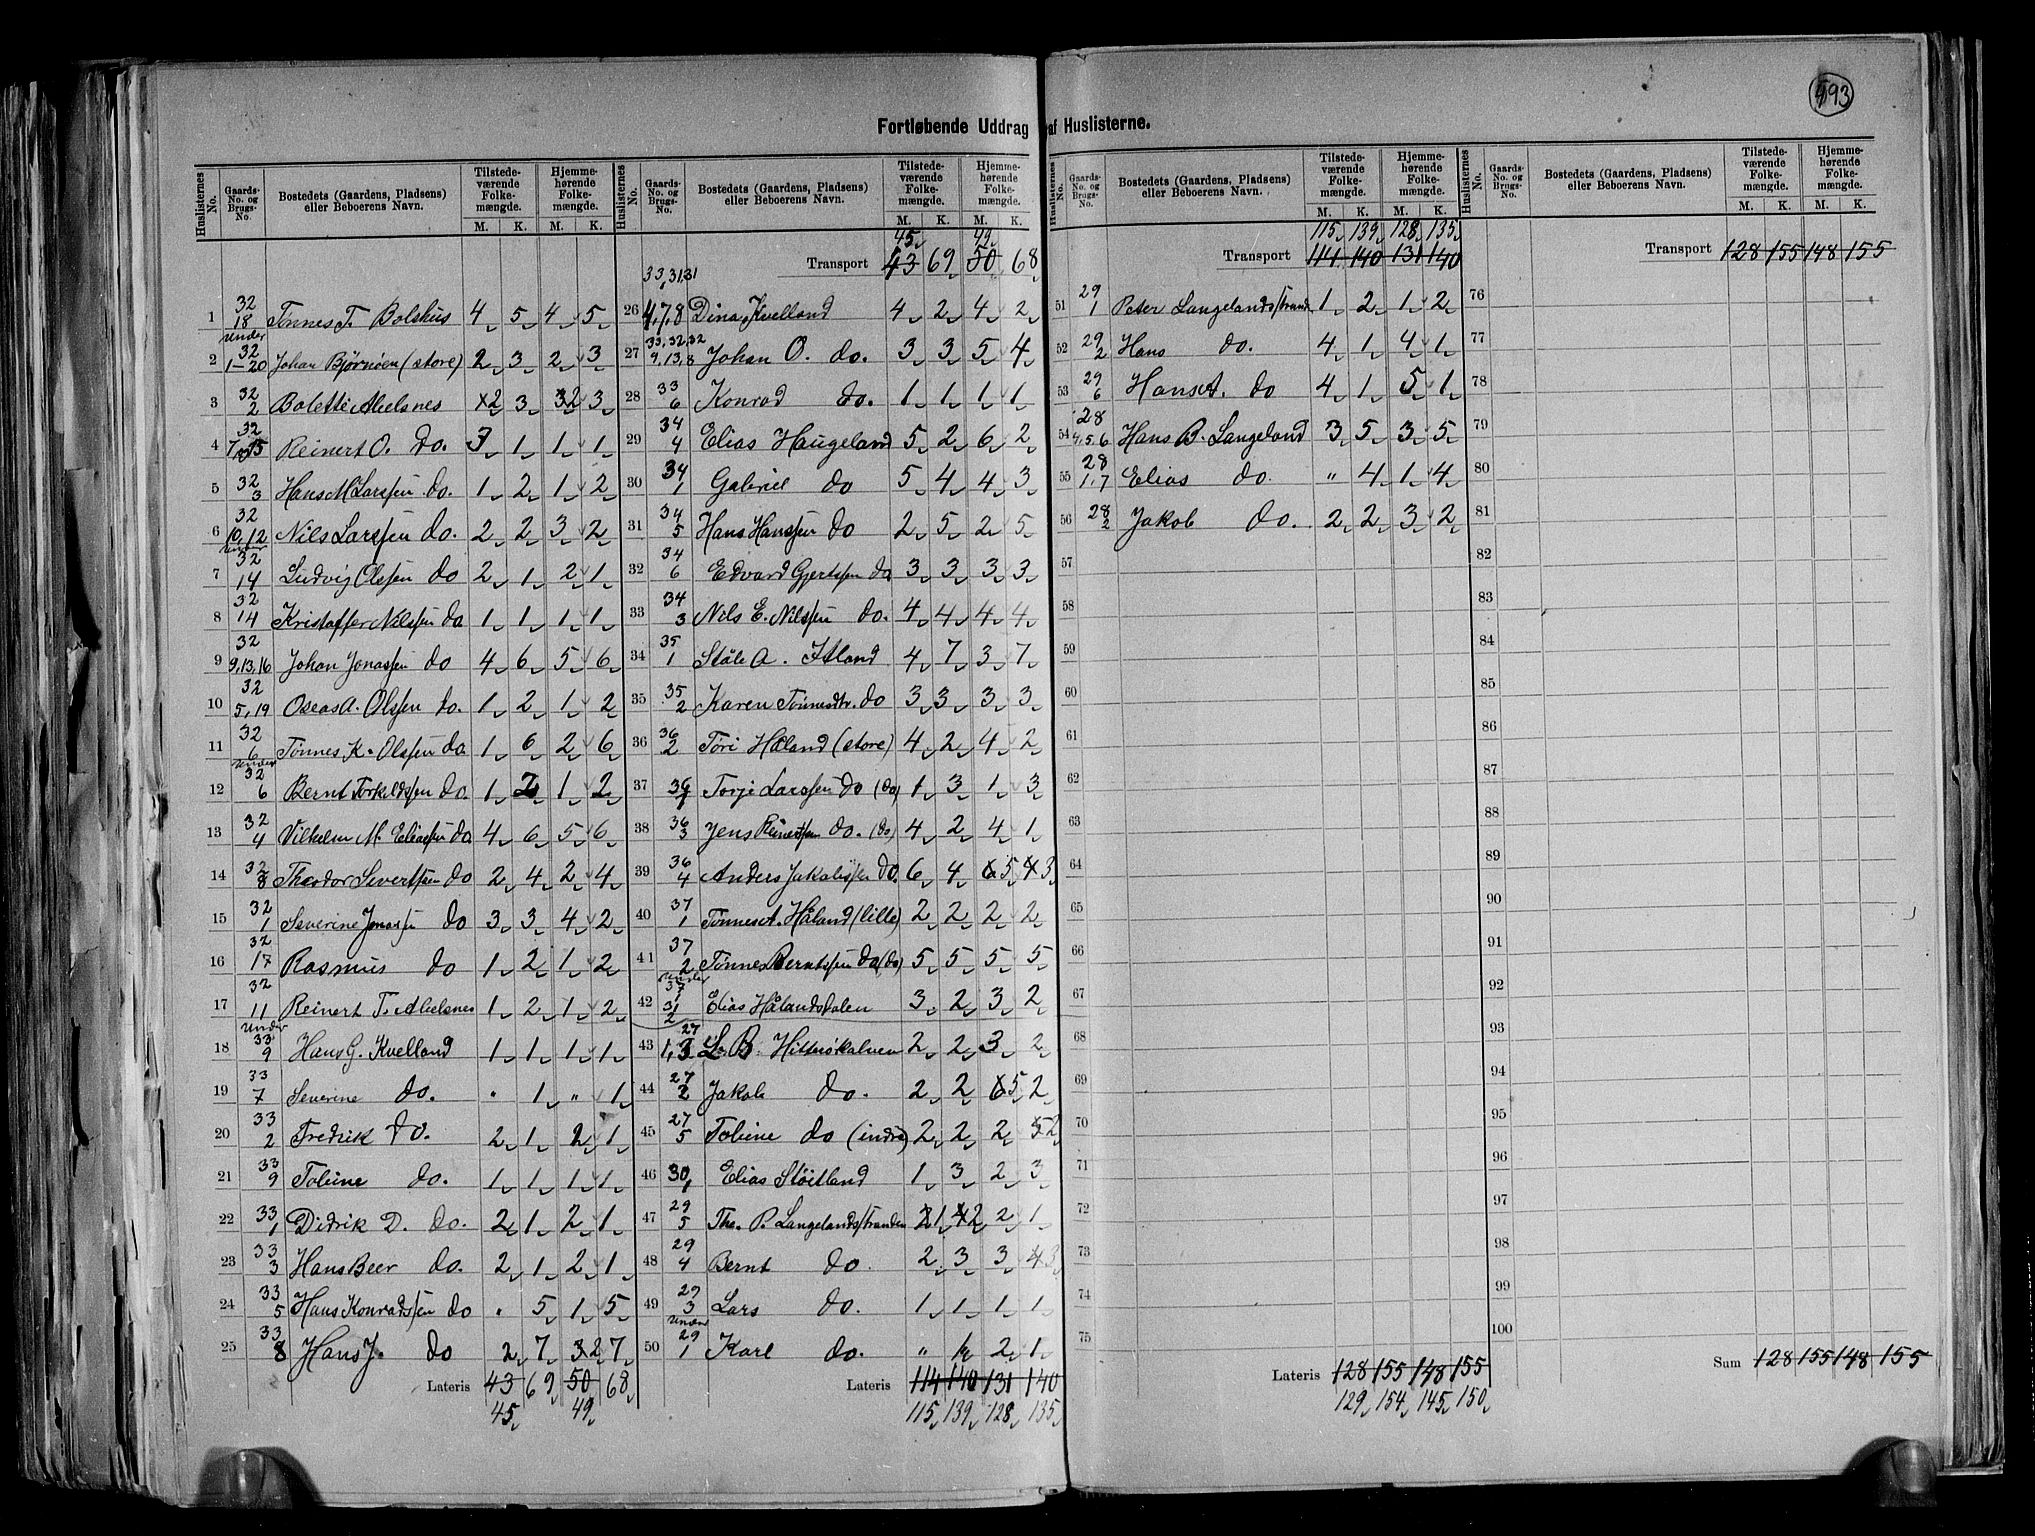 193
Fortløbende Uddrag af Huslisterne.
Huslisternes No. Gaards-No. og Brugs-No. Bostedets (Gaardens, Pladsens) eller Beboerens Navn. Tilstedeværende Folkemængde. M. K. Hjemmehørende Folkemængde. M. K.
1 32 18 Tønnes T. Bolshus 4 5 4 5
2 under 32 1-20 Johan Bjørnøen (store) 2 3 2 3
3 32 2 Bolette Abelsnes 2 3 2 3
4 32 Reinert O. do. 3 1 1 1
5 32 3 Hans M Larssen do. 1 2 1 2
6 32 10,12 Nils Larssen do. 2 2 3 2
7 under 32 14 Ludvig Olssen do 2 1 2 1
8 32 14 Kristoffer Nilssen do 1 1 1 1
9 32 9,13,16 Johan Jonassen do 4 6 5 6
10 32 5,19 Oseas A. Olssen do. 1 2 1 2
11 32 6 Tønnes K. Olssen do 1 6 2 6
12 under 32 6 Bernt Torkildssen do. 1 2 1 2
13 32 4 Vilhelm M. Eliassen do. 4 6 5 6
14 32 8 Theodor Sivertsen do 2 4 2 4
15 32 1 Severine Jonassen do 3 3 4 2
16 32 17 Rasmus do 1 2 1 2
17 32 11 Reinert T. Abelsnes 1 2 1 2
18 under 33 9 Hans G. Kvelland 1 1 1 1
19 33 7 Severine do. " 1 " 1
20 33 2 Fredrik do. 2 1 2 1
21 33 9 Tobine do. 1 1 1 1
22 33 1 Didrik D. do. 2 1 2 1
23 33 3 Hans Beer do. 2 1 2 1
24 33 5 Hans Konradssen do " 5 1 5
25 33 8 Hans J. do 2 7 2 7
Lateris 43 69 50 68
45 49
Huslisternes No. Gaards-No. og Brugs-No. Bostedets (Gaardens, Pladsens) eller Beboerens Navn. Tilstedeværende Folkemængde. M. K. Hjemmehørende Folkemængde. M. K.
45 49
Transport 43 69 50 68
26 33,31,31 4,7,8 Dina Kvelland 4 2 4 2
27 33,32,32 9,13,8 Johan O. do. 3 3 5 4
28 33 6 Konrad do. 1 1 1 1
29 34 4 Elias Haugeland 5 2 6 2
30 34 1 Gabriel do 5 4 4 3
31 34 5 Hans Hanssen do 2 5 2 5
32 34 6 Edvard Gjertssen do 3 3 3 3
33 34 3 Nils E. Nilssen do. 4 4 4 4
34 35 1 Ståle A. Itland 4 7 3 7
35 35 2 Karen Tønnesdtr. do 3 3 3 3
36 36 2 Tøri Håland (store) 4 2 4 2
37 36 1 Torje Larssen do (do) 1 3 1 3
38 36 3 Jens Reinertsen do. (do) 4 2 4 1
39 36 4 Anders Jakobssen do. 6 4 5 3
40 37 1 Tønnes A. Håland (lille) 2 2 2 2
41 37 2 Tønnes Berntssen do (do) 5 5 5 5
42 under 37 1 Elias Hålandsdalen 3 2 3 2
43 27 1,3 L. B. Hitterøkalven 2 2 3 2
44 27 2 Jakob do. 2 2 5 2
45 27 5 Tobine do (indre) 2 2 2 2
46 30 1 Elias Støitland 1 3 2 3
47 29 5 Tho. P. Langelandsstranden 1 2 2 1
48 29 4 Bernt do 2 3 3 3
49 29 3 Lars do. 1 1 1 1
50 under 29 1 Karl do. " 1 2 1
Lateris 114 140 131 140
115 139 128 135
Huslisternes No. Gaards-No. og Brugs-No. Bostedets (Gaardens, Pladsens) eller Beboerens Navn. Tilstedeværende Folkemængde. M. K. Hjemmehørende Folkemængde. M. K.
115 139 128 135
Transport 114 140 131 140
51 29 1 Peter Langelandsstrand 1 2 1 2
52 29 2 Hans do. 4 1 4 1
53 29 6 Hans A. do 4 1 5 1
54 28 4,5,6 Hans B. Langeland 3 5 3 5
55 28 1,7 Elias do. " 4 1 4
56 28 2 Jakob do. 2 2 3 2
57
58
59
60
61
62
63
64
65
66
67
68
69
70
71
72
73
74
75
Lateris 128 155 148 155
129 154 145 150
Huslisternes No. Gaards-No. og Brugs-No. Bostedets (Gaardens, Pladsens) eller Beboerens Navn. Tilstedeværende Folkemængde. M. K. Hjemmehørende Folkemængde. M. K.
Transport 128 155 148 155
76
77
78
79
80
81
82
83
84
85
86
87
88
89
90
91
92
93
94
95
96
97
98
99
100
Sum 128 155 148 155